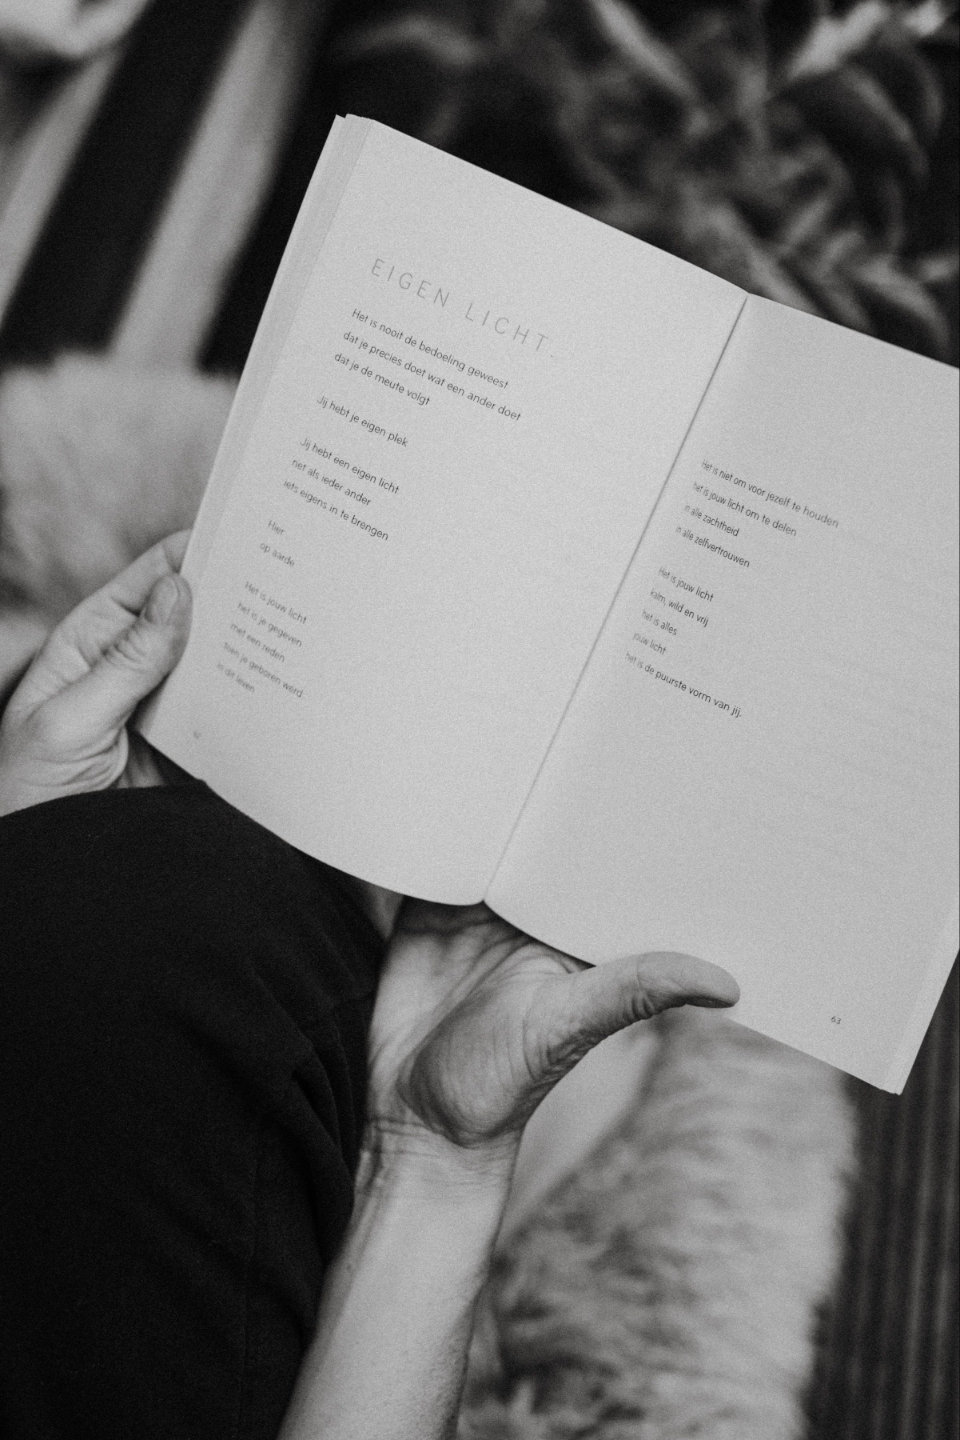 EIGEN LICHT.
Het is nooit de bedoeling geweest
dat je precies doet wat een ander doet
dat je de meute volgt
Jij hebt je eigen plek
Jij hebt een eigen licht
net als ieder ander
iets eigens in te brengen
Hier
op aarde
Het is jouw licht
het is je gegeven
met een reden
toen je geboren werd
in dit leven
62
Het is niet om voor jezelf te houden
het is jouw licht om te delen
in alle zachtheid
in alle zelfvertrouwen
Het is jouw licht
kalm, wild en vrij
het is alles
jouw licht
het is de puurste vorm van jij.
63